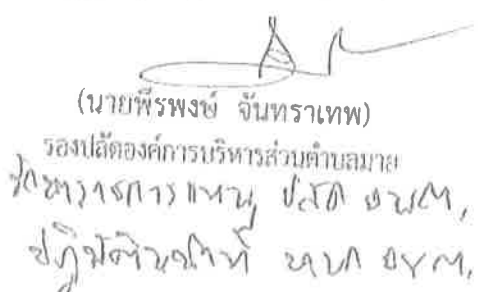 (นายพีรพงษ์ จันทราเทพ)
รองปลัดองค์การบริหารส่วนตำบลมาย
รักษาราชการแทน ปลัด อบต.
ปฏิบัติหน้าที่ นายก อบต.